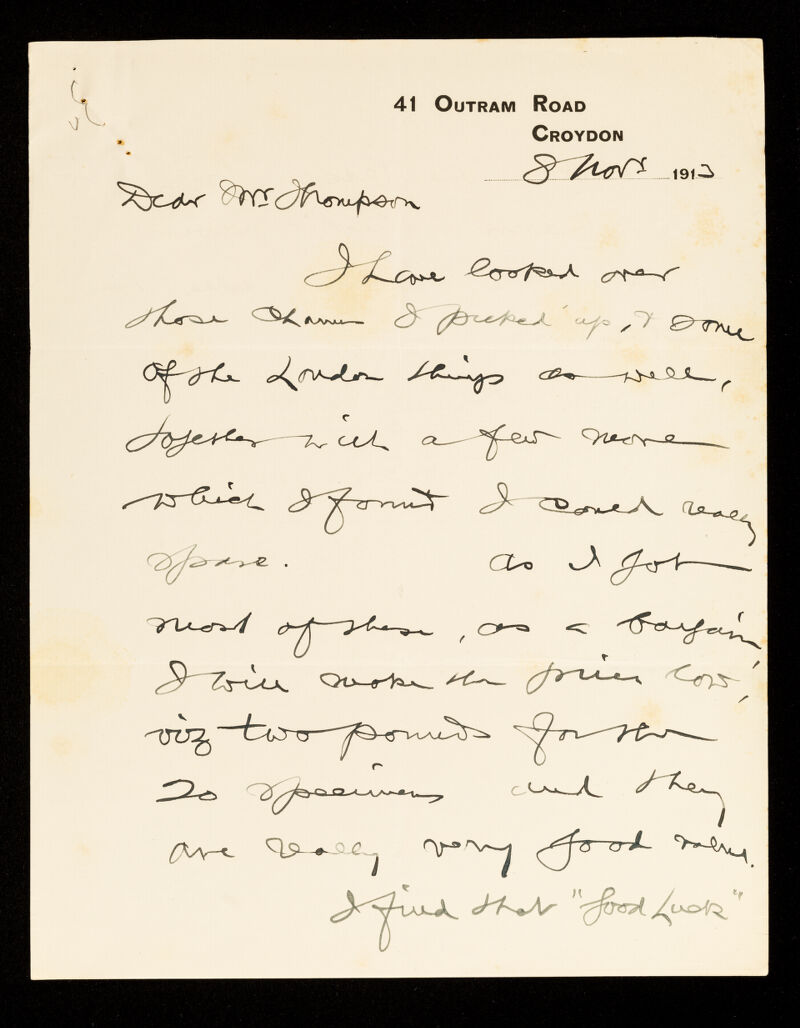 41 OUTRAM ROAD
CROYDON
8 Novr 1913
Dear Mr Thompson
I have looked over
those charms I picked up, & some
of the London things as well,
together with a few more
which I found I could really
spare. As I got
most of these, as a bargain,
I will make the price low,
viz two pounds for the
20 specimens and they
are really very good value.
I find that "Good Luck"